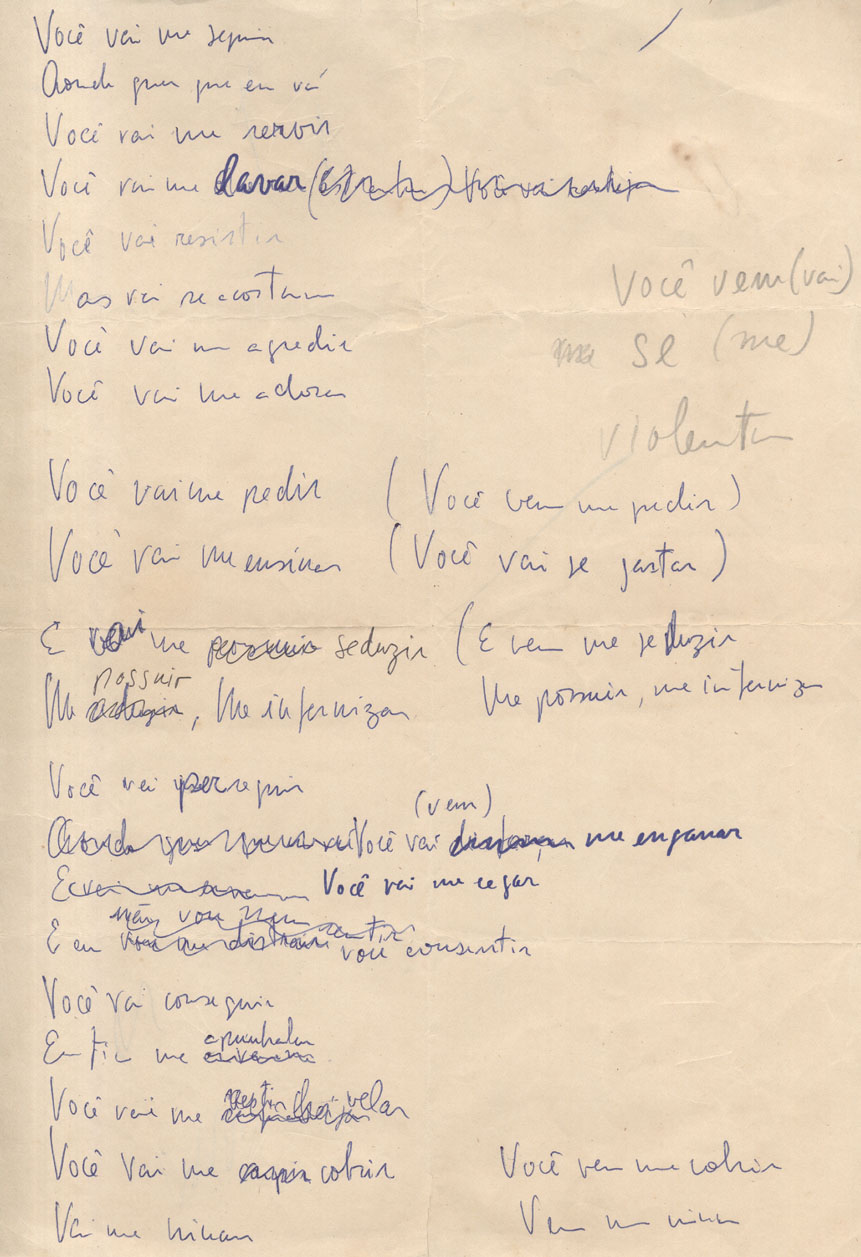 Você vai me seguir
Aonde quer que eu vá
Você vai me servir
Você vai me lavar
Você vai resistir
Mas vai se acostumar
Você vem (vai)
Você vai me agredir
se (me)
Você vai me adorar
violentar
Você vai me pedir (Você vem me pedir)
Você vai me ensinar (Você vai se gastar)
E vai me possuir seduzir (E vem me seduzir
possuir
Me, Me infernizar Me possuir, me infernizar
Você vai perseguir
(vem)
Aonde quer que eu vá Você vai me enganar
Você vai me cegar
não vou nem sentir
E eu vou me distrair vou consentir
Você vai conseguir
apunhalar
Enfim me
vestir
Você vai me velar
Você vai me cobrir Você vem me cobrir
Vai me ninar Vem me ninar